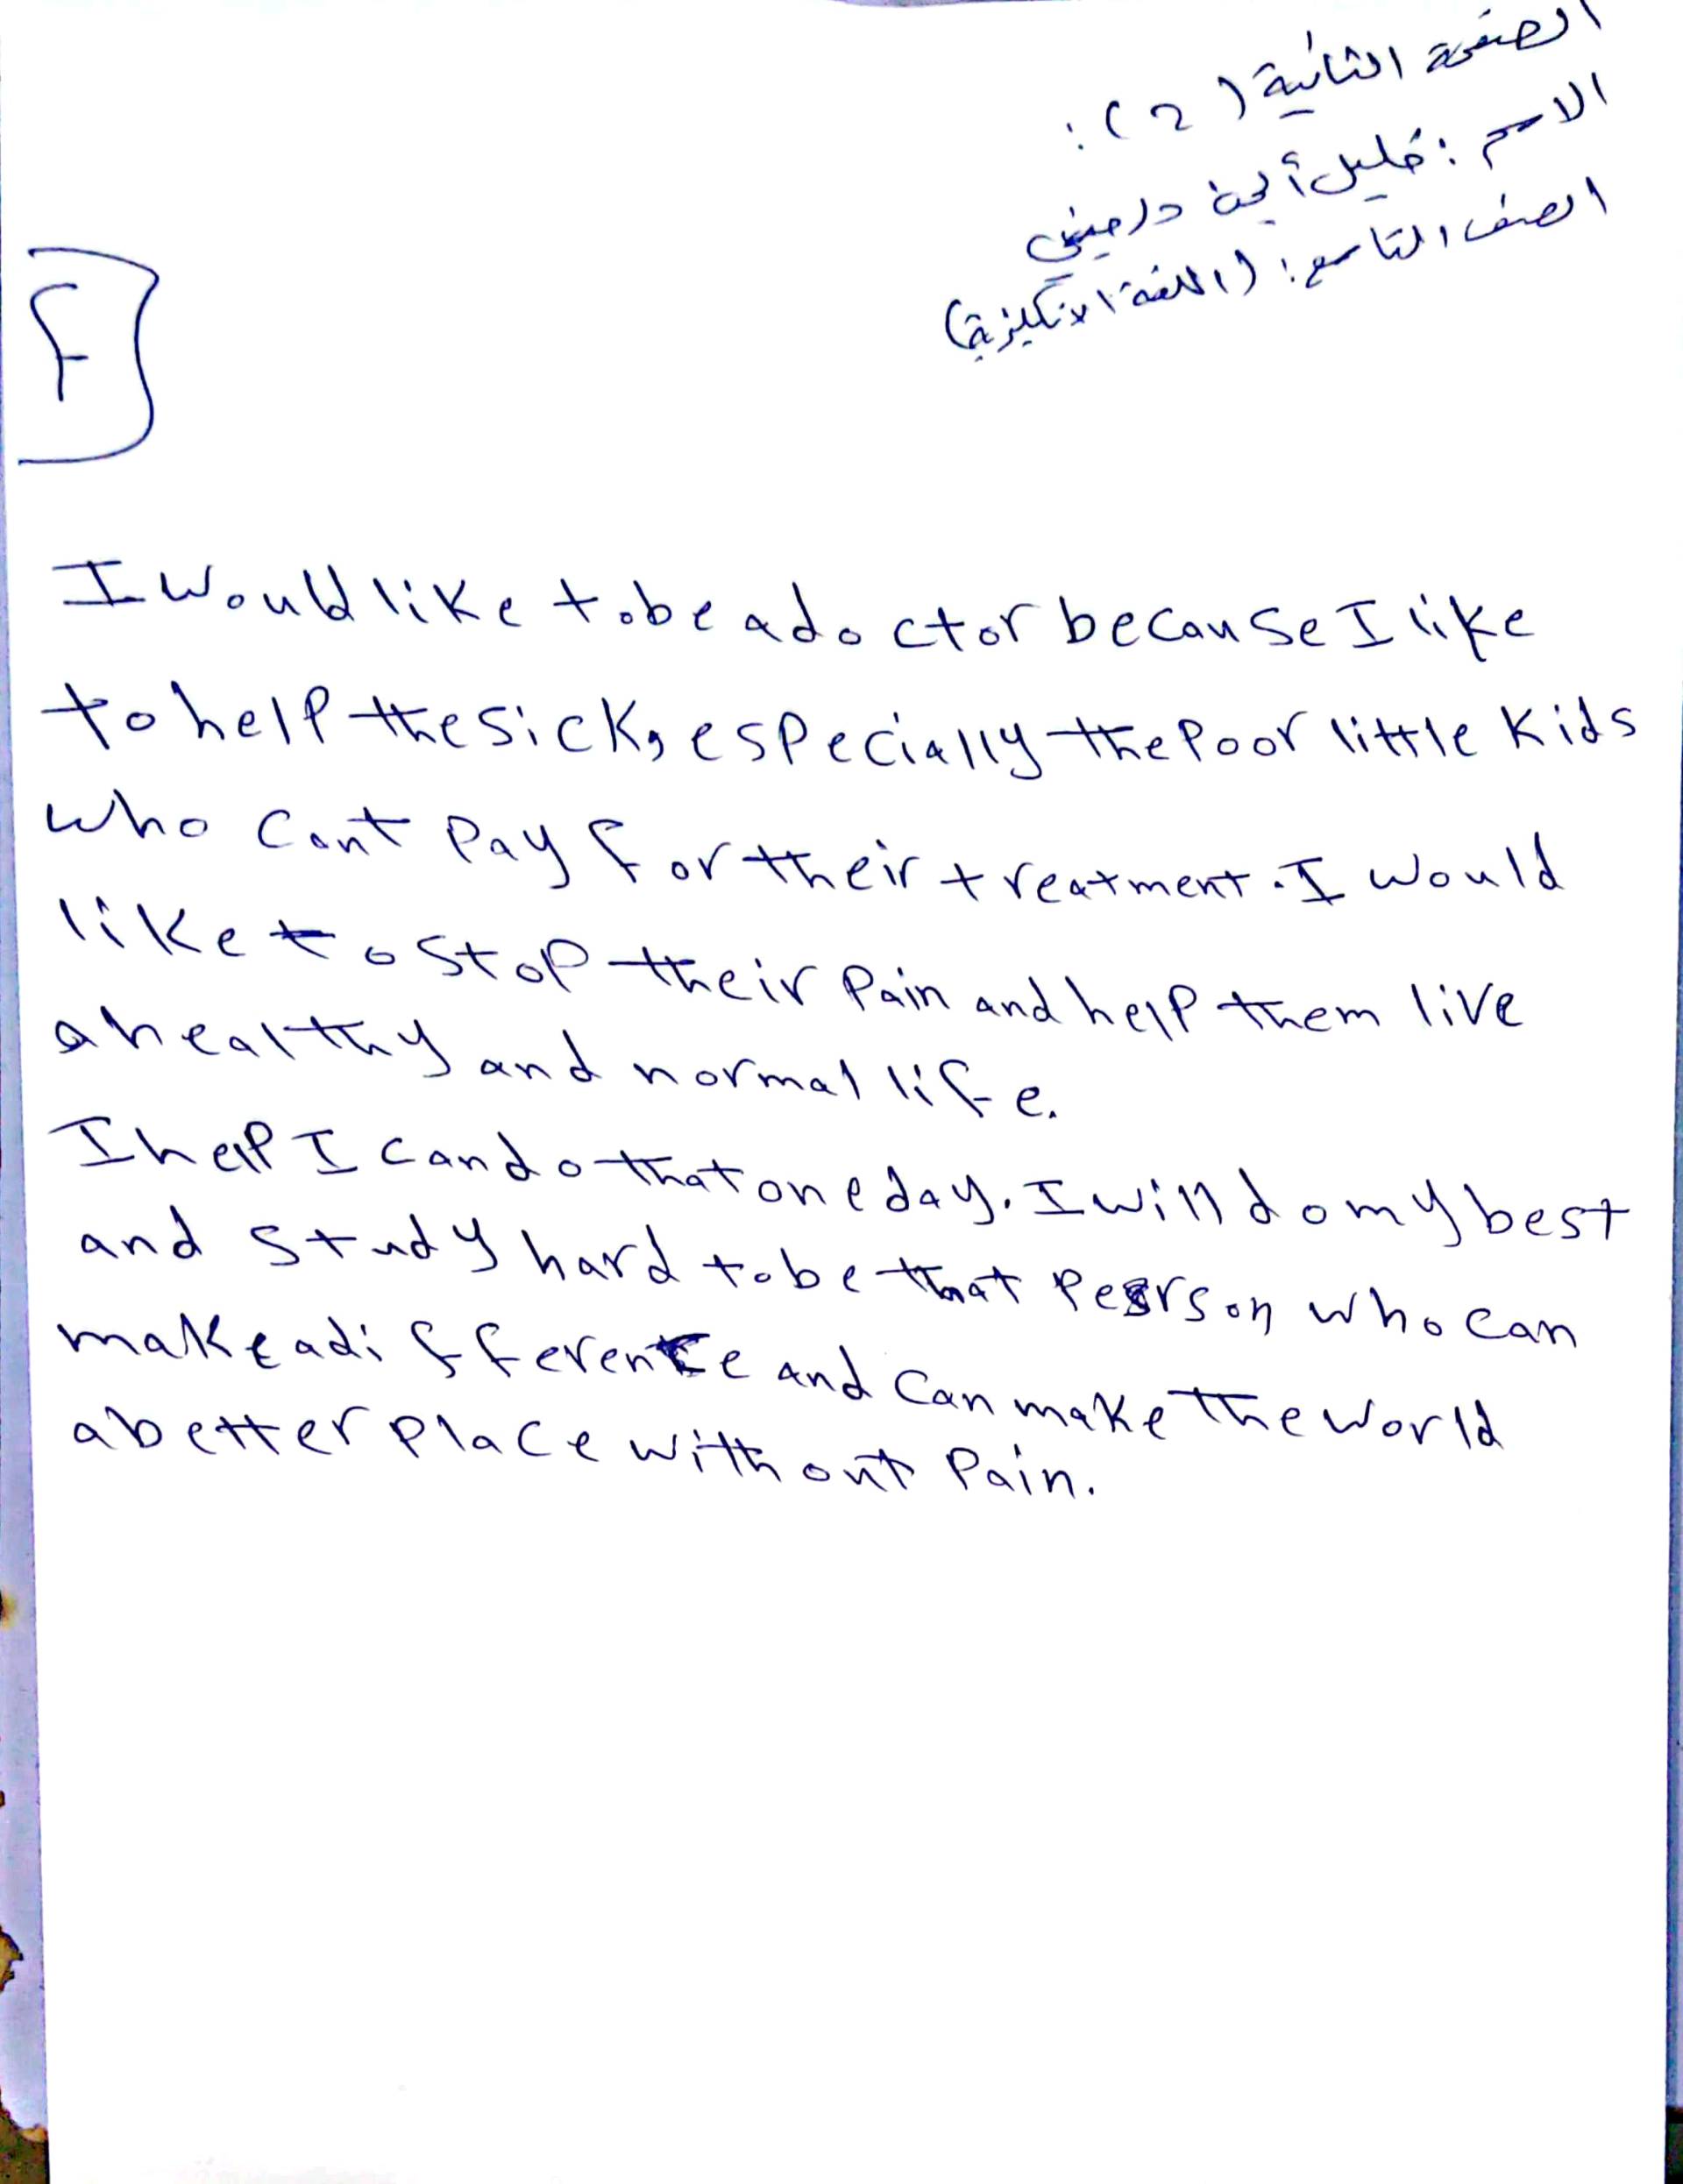 الصفحة الثانية (2):
الاسم: خليل أيمن دلاجيني
الصف التاسع: (اللغة الانكليزية)
F
I would like to be a doctor because I like
to help the sick, especially the poor little kids
who cant pay for their treatment. I would
like to stop their pain and help them live
a healthy and normal life.
I help I can do that one day. I will do my best
and study hard to be that person who can
make a difference and can make the world
a better place without pain.